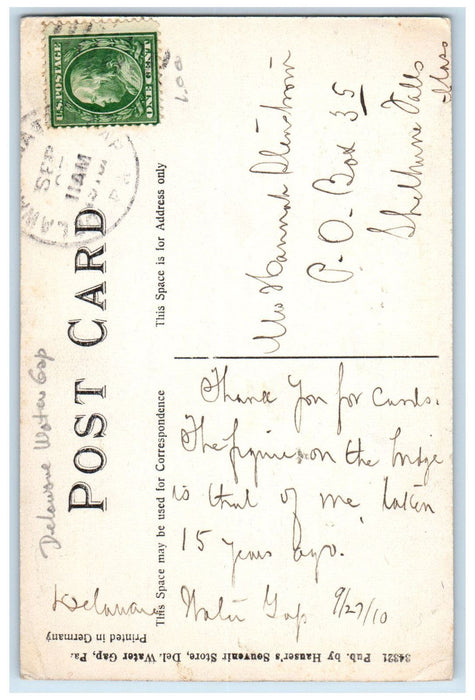 POST CARD
This Space may be used for Correspondence
This Space is for Address only
U.S. POSTAGE
ONE CENT
SEP
11 AM
PA
1.00
Delaware Water Gap
Thank You for Cards.
The figure on the bridge
is that of me, taken
15 years ago.
Delaware Water Gap 9/27/10
Hannah
P.O. Box 35
Shelburne Falls
Mass
34321 Pub. by Hauser's Souvenir Store, Del. Water Gap, Pa.
Printed in Germany